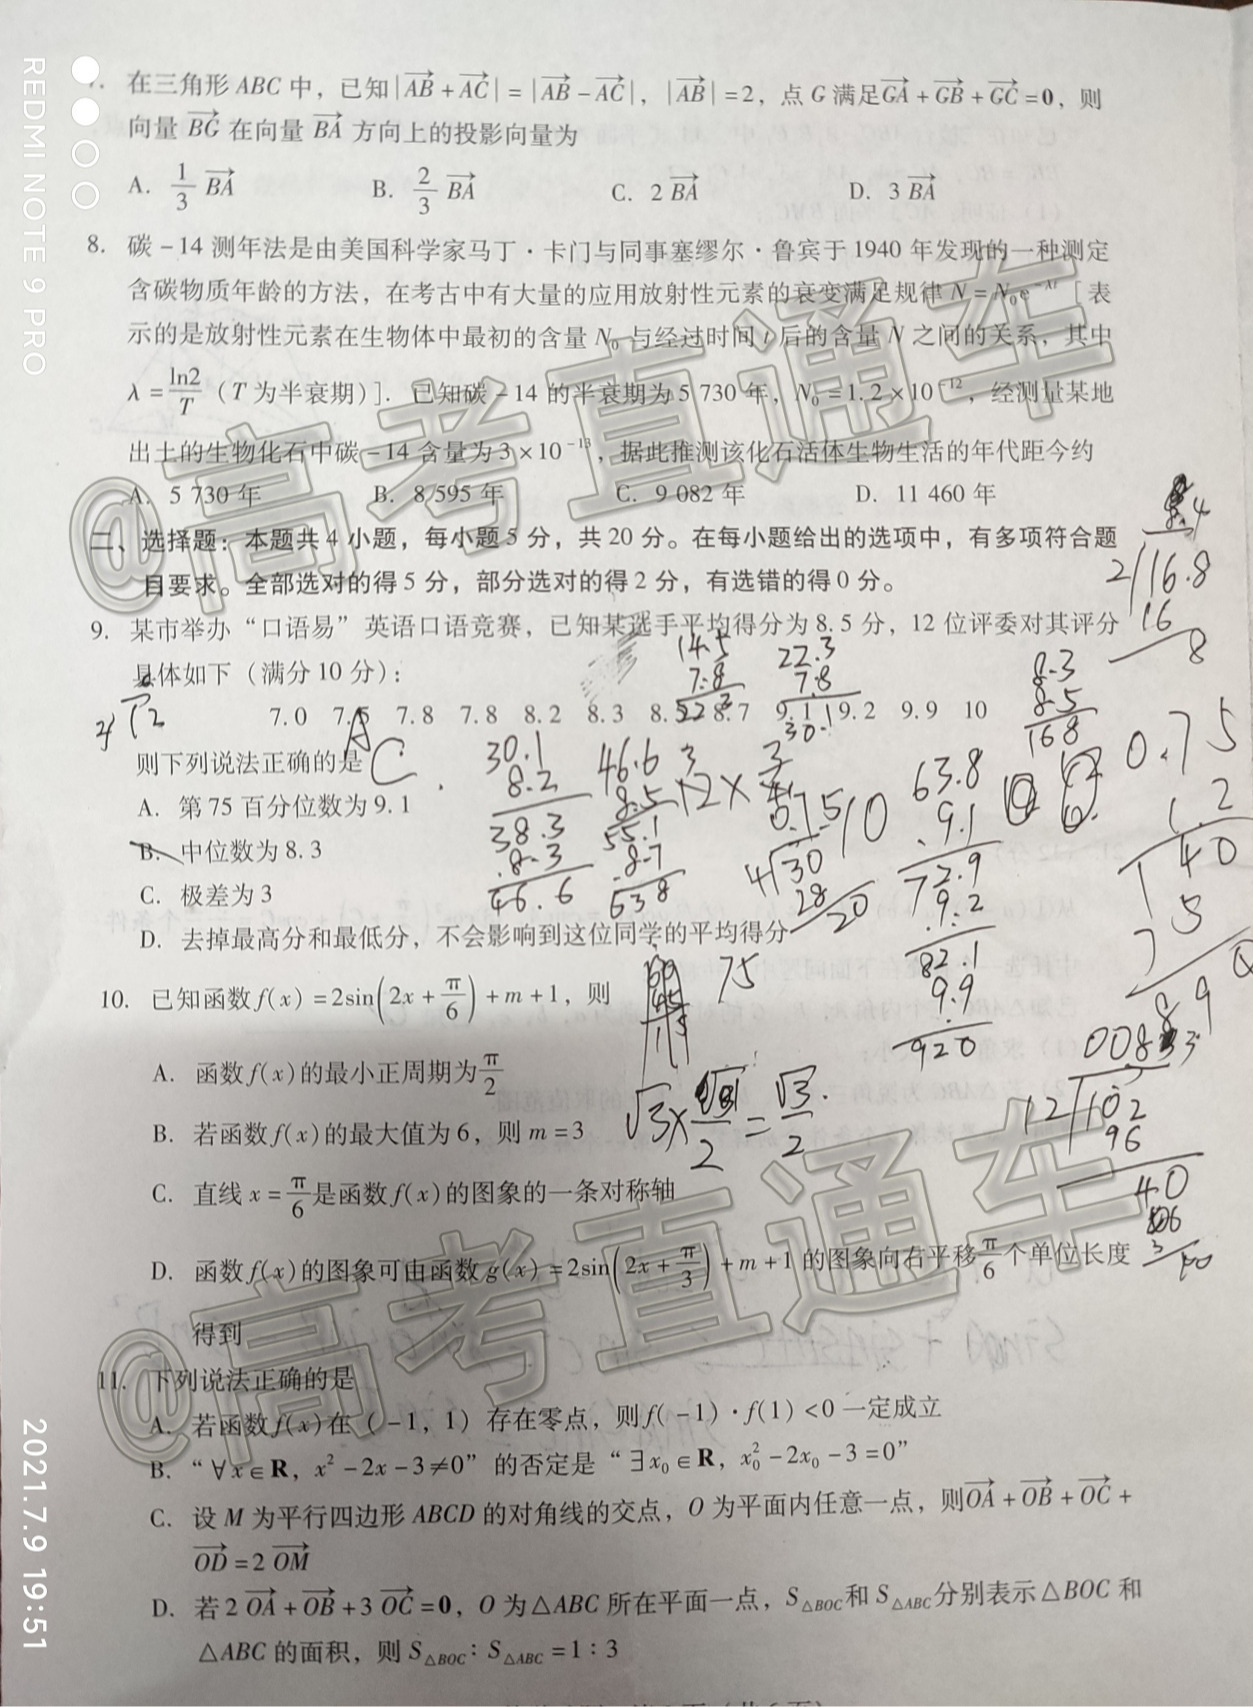 7. 在三角形 ABC 中，已知|AB + AC| = |AB - AC|，|AB| = 2，点 G 满足GA + GB + GC = 0，则
向量 BG 在向量 BA 方向上的投影向量为
A. 1/3 BA B. 2/3 BA C. 2 BA D. 3 BA
8. 碳-14 测年法是由美国科学家马丁·卡门与同事塞缪尔·鲁宾于 1940 年发现的一种测定
含碳物质年龄的方法，在考古中有大量的应用放射性元素的衰变满足规律 N = N₀e^(-λt) [表
示的是放射性元素在生物体中最初的含量 N₀ 与经过时间 t 后的含量 N 之间的关系，其中
λ = ln2/T（T 为半衰期）]．已知碳-14 的半衰期为 5 730 年，N₀ = 1.2×10⁻¹²，经测量某地
出土的生物化石中碳-14 含量为 3×10⁻¹³，据此推测该化石活体生物生活的年代距今约
A. 5 730 年 B. 8 595 年 C. 9 082 年 D. 11 460 年
二、选择题：本题共 4 小题，每小题 5 分，共 20 分。在每小题给出的选项中，有多项符合题
目要求。全部选对的得 5 分，部分选对的得 2 分，有选错的得 0 分。
9. 某市举办“口语易”英语口语竞赛，已知某选手平均得分为 8.5 分，12 位评委对其评分
具体如下（满分 10 分）：
7.0 7.5 7.8 7.8 8.2 8.3 8.5 8.7 9.1 9.2 9.9 10
则下列说法正确的是 AC
A. 第 75 百分位数为 9.1
B. 中位数为 8.3
C. 极差为 3
D. 去掉最高分和最低分，不会影响到这位同学的平均得分
10. 已知函数 f(x) = 2sin(2x + π/6) + m + 1，则
A. 函数 f(x) 的最小正周期为 π/2
B. 若函数 f(x) 的最大值为 6，则 m = 3
C. 直线 x = π/6 是函数 f(x) 的图象的一条对称轴
D. 函数 f(x) 的图象可由函数 g(x) = 2sin(2x + π/3) + m + 1 的图象向右平移 π/6 个单位长度
得到
11. 下列说法正确的是
A. 若函数 f(x) 在（-1，1）存在零点，则 f(-1)·f(1) < 0 一定成立
B. “∀x∈R，x² - 2x - 3 ≠ 0”的否定是“∃x₀∈R，x₀² - 2x₀ - 3 = 0”
C. 设 M 为平行四边形 ABCD 的对角线的交点，O 为平面内任意一点，则OA + OB + OC +
OD = 2 OM
D. 若 2 OA + OB + 3 OC = 0，O 为△ABC 所在平面一点，S△BOC和 S△ABC分别表示△BOC 和
△ABC 的面积，则 S△BOC：S△ABC = 1：3
@高考直通车
@高考直通车
REDMI NOTE 9 PRO
2021.7.9 19:51
14.5
7.8
22.3
7.8
30.1
8.3
8.5
168
2
16.8
16
8
30.1
8.2
38.3
8.3
46.6
46.6
8.5
55.1
8.7
638
63.8
9.1
72.9
9.2
82.1
9.9
920
4
30
28
20
75
0.75
12
102
96
40